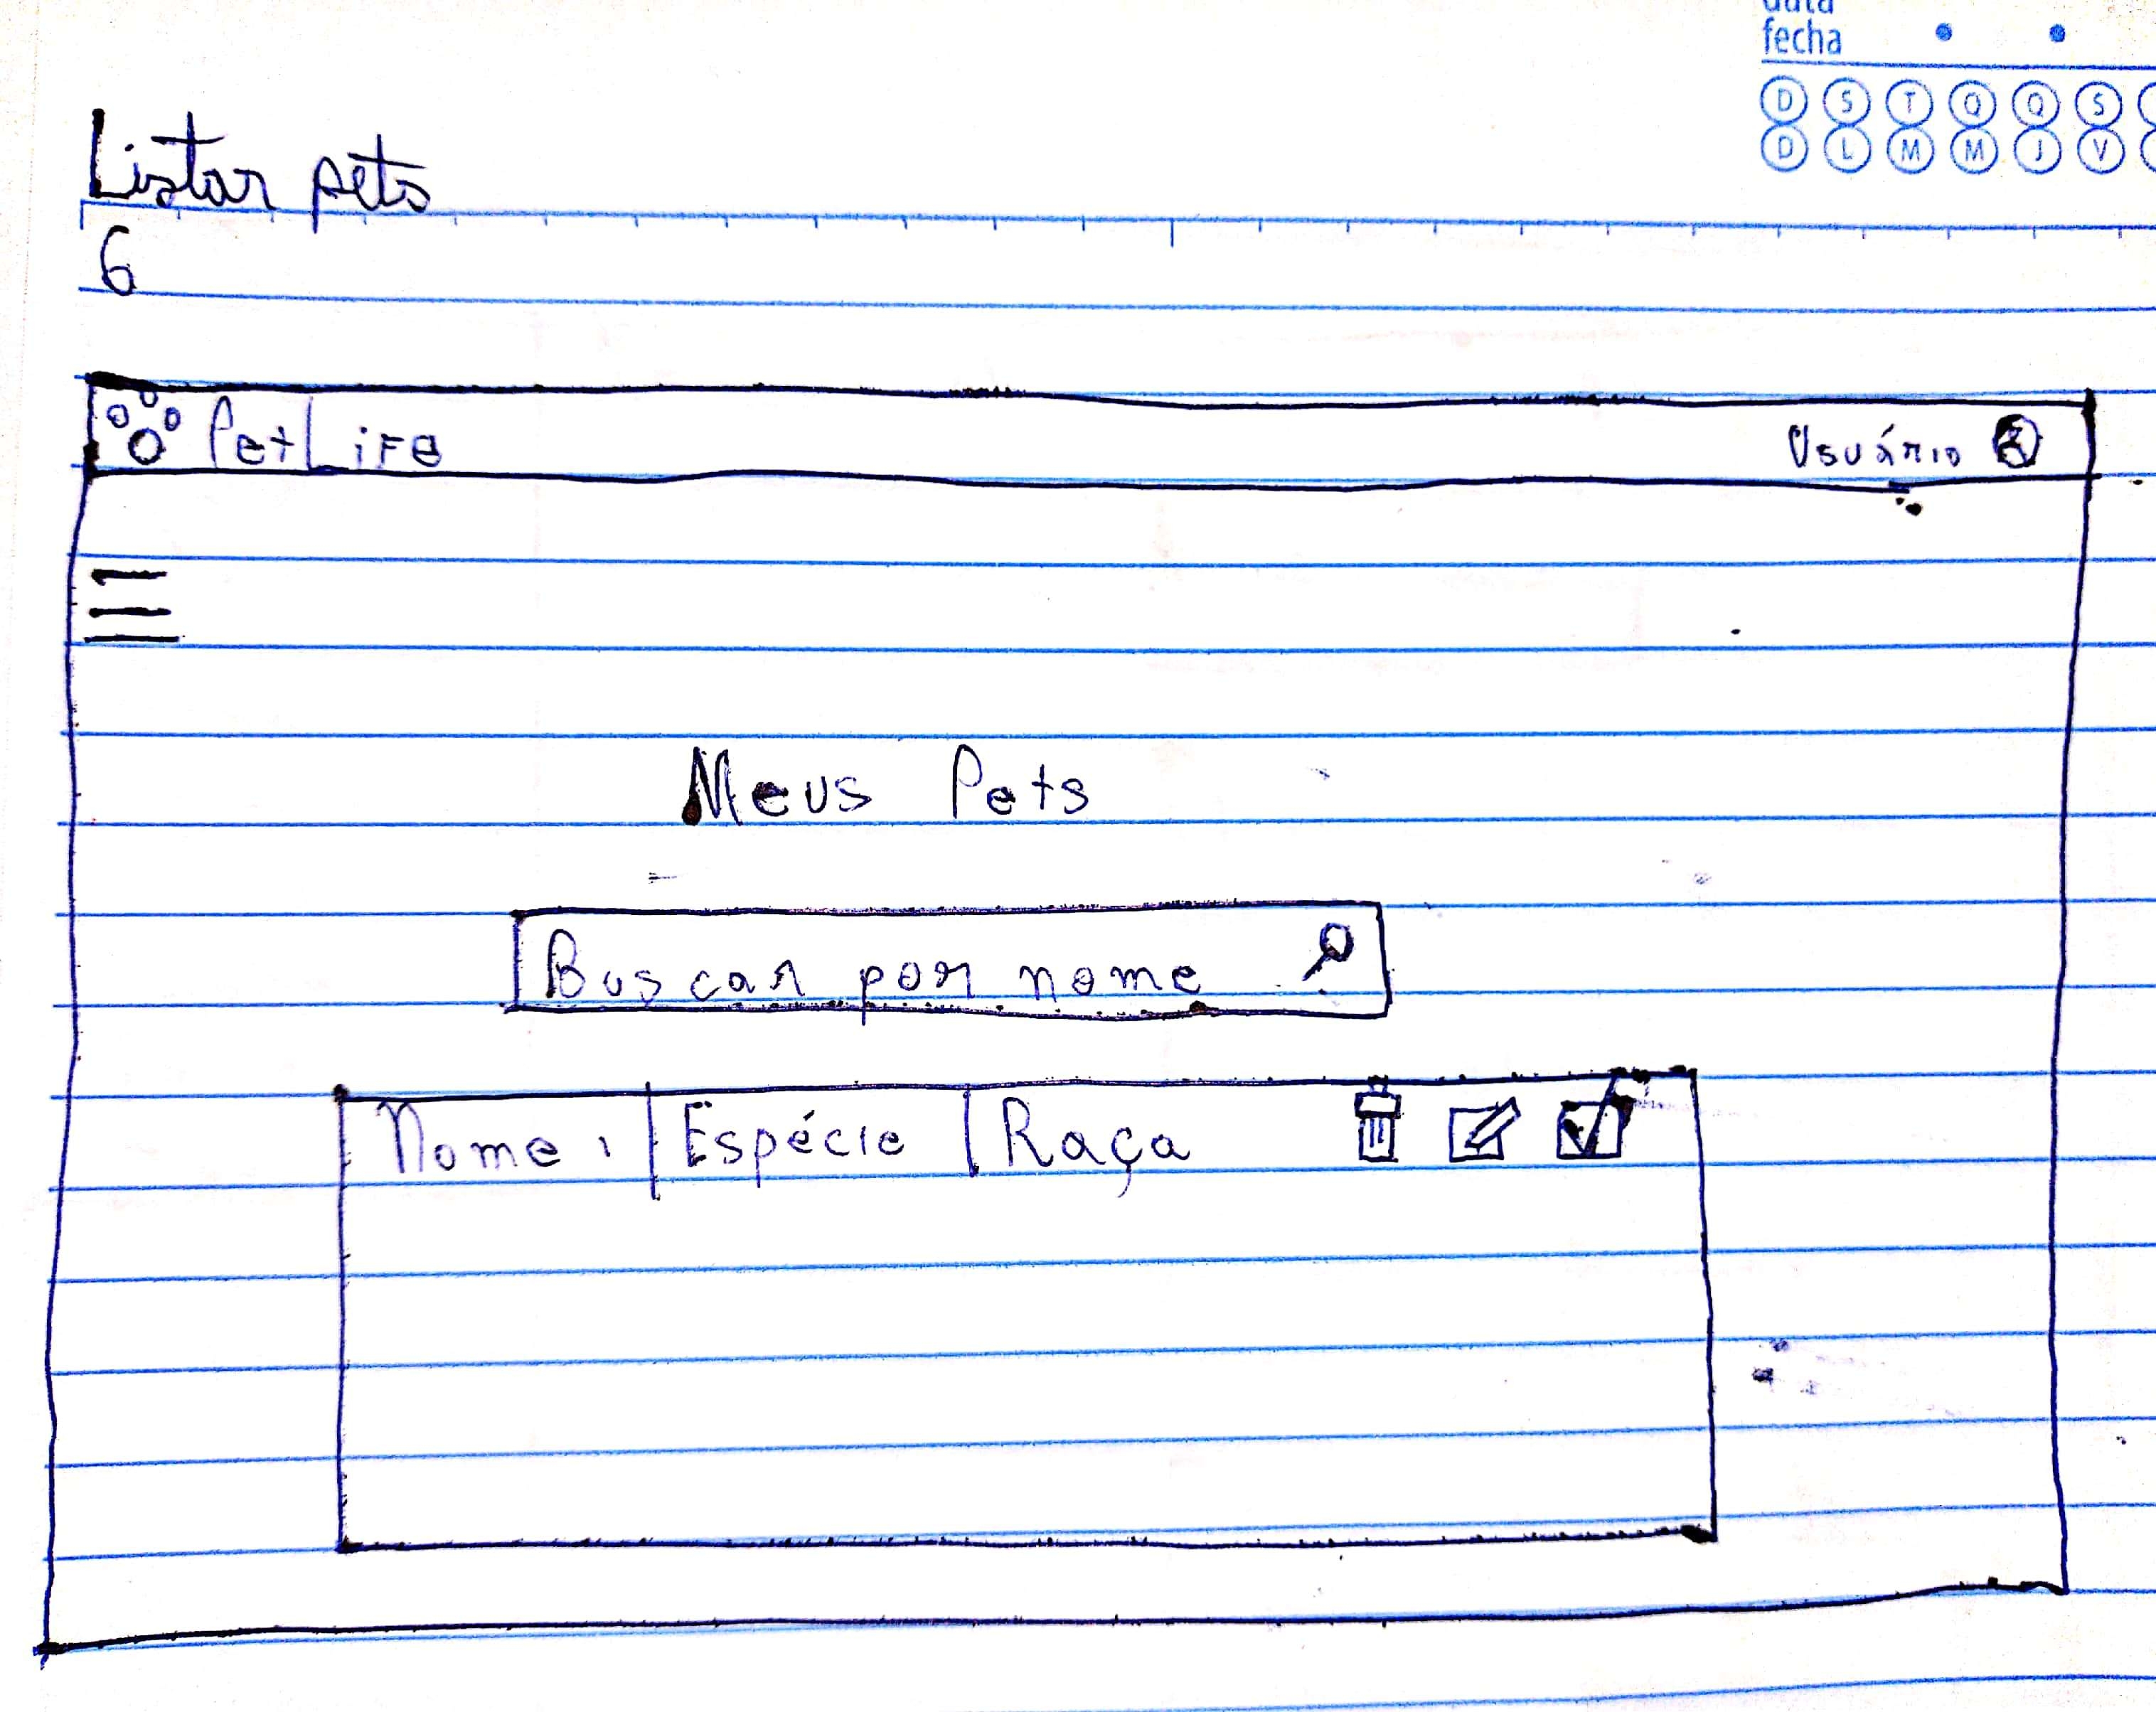 data
fecha
D S T Q Q S
D L M M J V
Listar pets
6
PetLife Usuário
Meus Pets
Buscar por nome
Nome Espécie Raça